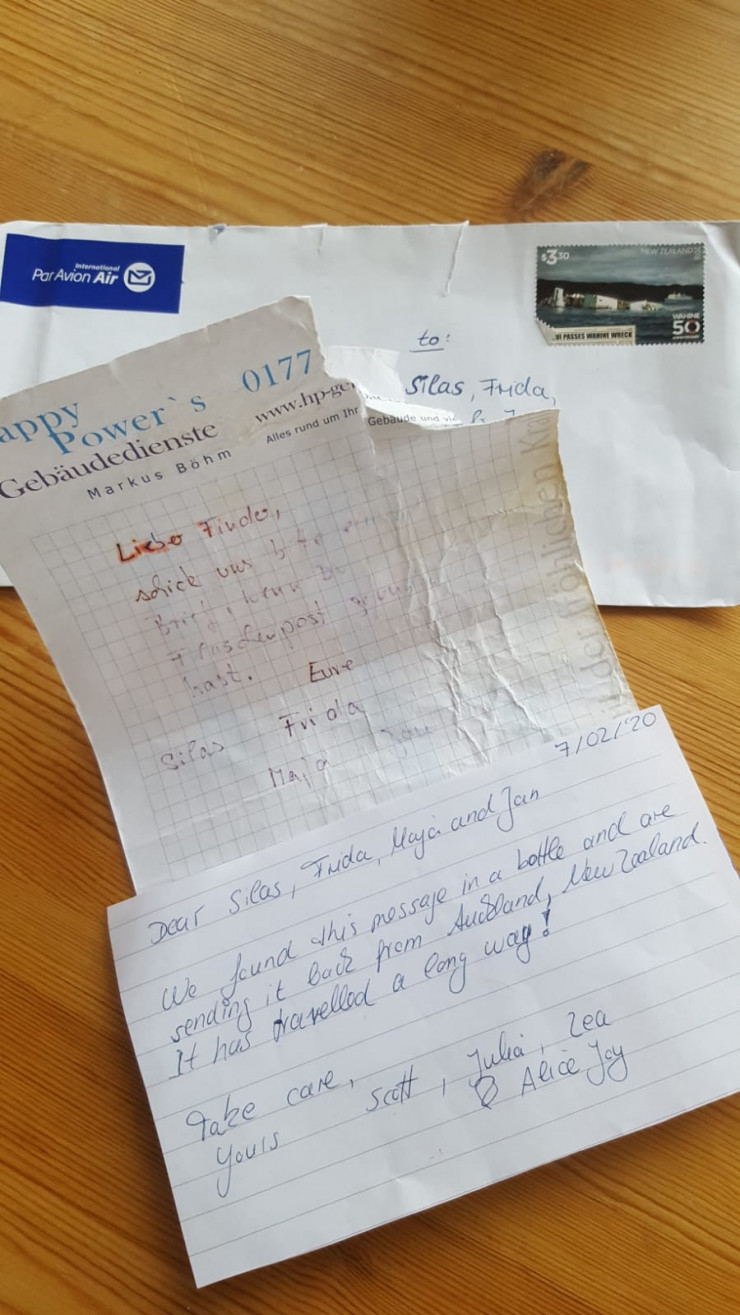 International
Par Avion Air
$3.30
NEW ZEALAND
WAHINE
50
PASSES WAHINE WRECK
to:
Silas, Frida,
appy 0177
Power`s
Gebäudedienste www.hp-ge
Markus Böhm Alles rund um Ihr Gebäude und
Liebe Finder,
schick uns
wenn
hast. Eure
Silas Frida
Maja Jan
7/02/'20
Dear Silas, Frida, Maja and Jan
We found this message in a bottle and are
sending it back from Auckland, New Zealand.
It has travelled a long way!
Take care,
Yours Scott, Julia, Lea
& Alice Joy